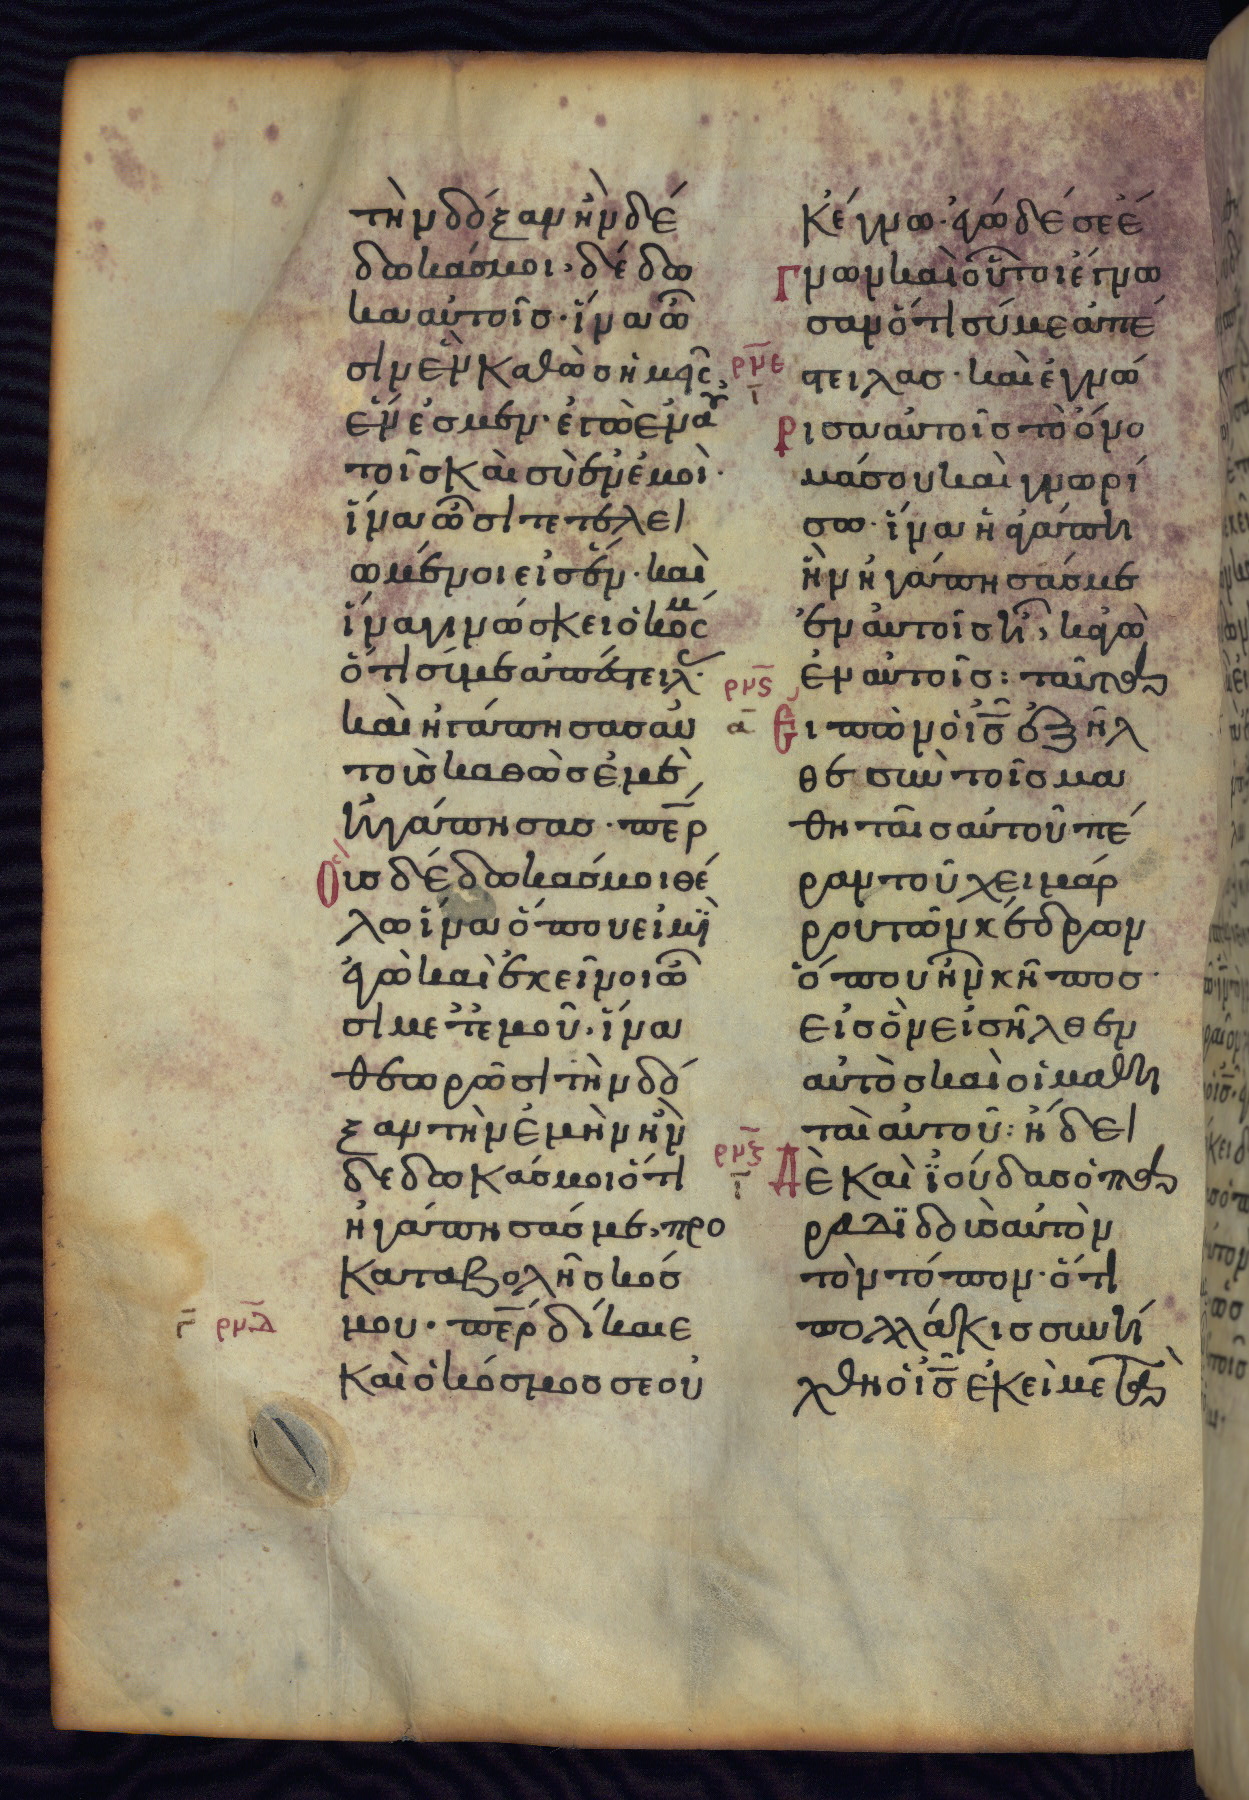 τὴν δόξαν ἣν δέ
δωκάσ μοι, δέδω
κα αὐτοῖσ· ἵνα ὦ
σιν ἓν καθὼσ ἡμεῖς
ἕν ἐσμεν· ἐγὼ ἐν αυ
τοῖσ καὶ σὺ ἐν ἐμοὶ·
ἵνα ὦσι τετελει
ωμένοι εἰσ ἕν· καὶ
ἵνα γινώσκει ὁ κόσμ
ὅτι σύ με ἀπέστειλ·
καὶ ἠγάπησασ αὐ
τοὺσ καθὼσ ἐμὲ
ἠγάπησασ· πε̅ρ
Οὓσ δέδωκάσ μοι θέ
λω ἵνα ὅπου εἰμῒ
ἐγὼ καὶ ἐκεῖνοι ὦ
σι μετ' ἐμοῦ· ἵνα
θεωρῶσι τὴν δό
ξαν τὴν ἐμὴν ἣν
δέδωκάσ μοι ὅτι
ἠγάπησάσ με, προ
καταβολῆσ κόσ
ρ̅μ̅δ̅ μου· πε̅ρ δίκαιε
καὶ ὁ κόσμοσ σε οὐ
κ ἔγνω· ἐγὼ δέ σε ἔ
Γνων καὶ οὗτοι ἔγνω
σαν ὅτι σύ με ἀπέ
ρμ̅ε στειλασ· καὶ ἐγνώ
ι̅ Ρισα αὐτοῖσ τὸ ὄνο
μά σου καὶ γνωρί
σω· ἵνα ἡ ἀγάπη
ἣν ἠγάπησάσ με
ἐν αὐτοῖσ ἦ, κἀγὼ
ρμς̅ ἐν αὐτοῖσ: ταῦτα
α̅ Εἰπὼν ὁ ι̅σ̅ ἐξῆλ
θε σὺν τοῖσ μα
θηταῖσ αὐτοῦ πέ
ραν τοῦ χειμάρ
ρου τῶν κέδρων
ὅπου ἦν κῆποσ·
εἰσ ὃν εἰσῆλθεν
αὐτὸσ καὶ οἱ μαθη
ταὶ αὐτοῦ: ἤδει
ρμ̅ζ ι̅ Δὲ καὶ ἰούδασ ὁ πα
ραδιδοὺσ αὐτὸν
τὸν τόπον· ὅτι
πολλάκισ συνή
χθη ὁ ι̅σ̅ ἐκεῖ μετὰ